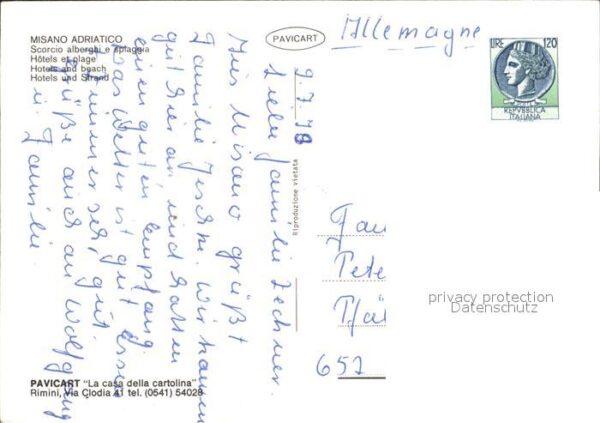 MISANO ADRIATICO
Scorcio alberghi e spiaggia
Hôtels et plage
Hotels and beach
Hotels und Strand
PAVICART
Allemagne
LIRE 120
REPVBBLICA
ITALIANA
9.7.79
Liebe Familie Zechner.
Aus Misano grüßt
Familie Wir kamen
gut hier an und hatten
einen guten Empfang.
Das Wetter ist gut Essen
immer sehr gut.
Grüße auch an Wolfgang
u. Familie.
Riproduzione vietata
Fam
Pete
Pfäl
657
privacy protection
Datenschutz
PAVICART "La casa della cartolina"
Rimini, Via Clodia 41 tel. (0541) 54028